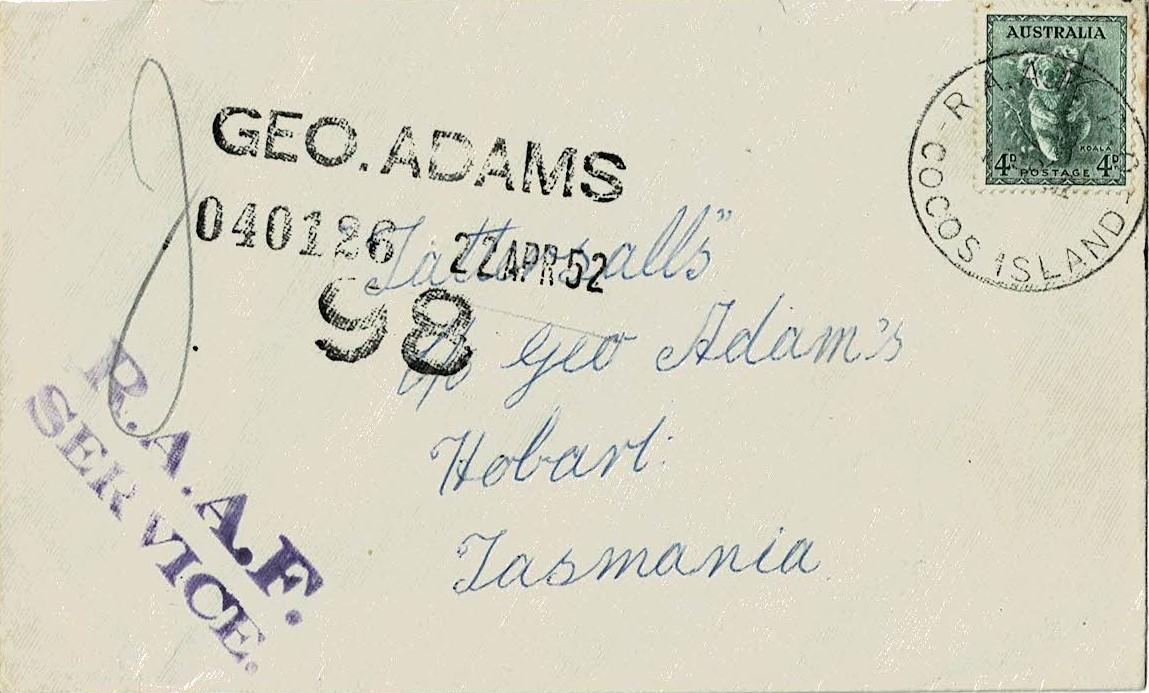 AUSTRALIA
KOALA
4D POSTAGE 4D
R.A.A.F.
COCOS ISLAND
GEO. ADAMS
040126 22 APR 52
98
"Tattersalls"
c/o Geo Adam's
Hobart.
Tasmania
R.A.A.F.
SERVICE.